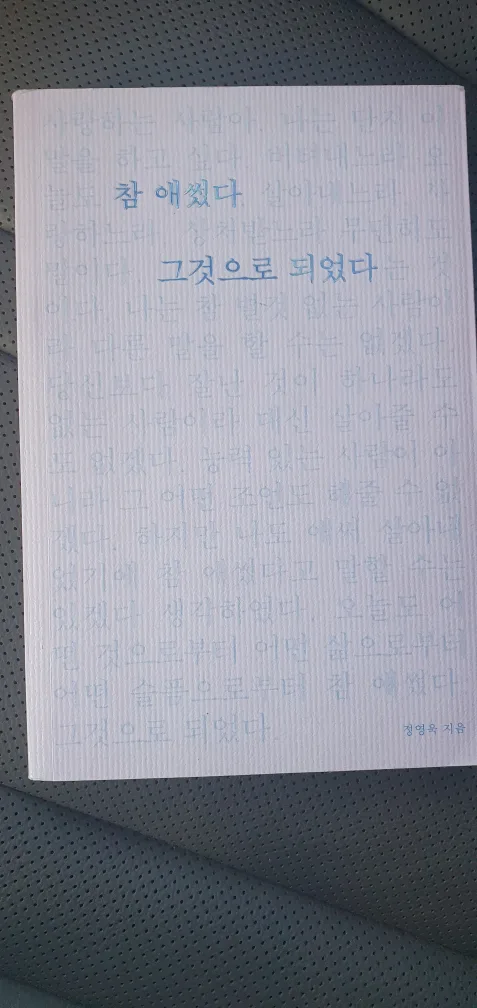 사랑하는 사람아. 나는 단지 이
말을 하고 싶다. 버텨내느라 오
늘도 참 애썼다 살아내느라, 사
랑하느라, 상처받느라 무던히도
말이다. 그것으로 되었다는 것
이다. 나는 참 별것 없는 사람이
라 다른 말을 할 수는 없겠다.
당신보다 잘난 것이 하나라도
없는 사람이라 대신 살아줄 수
도 없겠다. 능력 있는 사람이 아
니라 그 어떤 조언도 해줄 수 없
겠다. 하지만 나도 애써 살아내
었기에 참 애썼다고 말할 수는
있겠다 생각하였다. 오늘도 어
떤 것으로부터 어떤 삶으로부터
어떤 슬픔으로부터 참 애썼다.
그것으로 되었다.
정영욱 지음